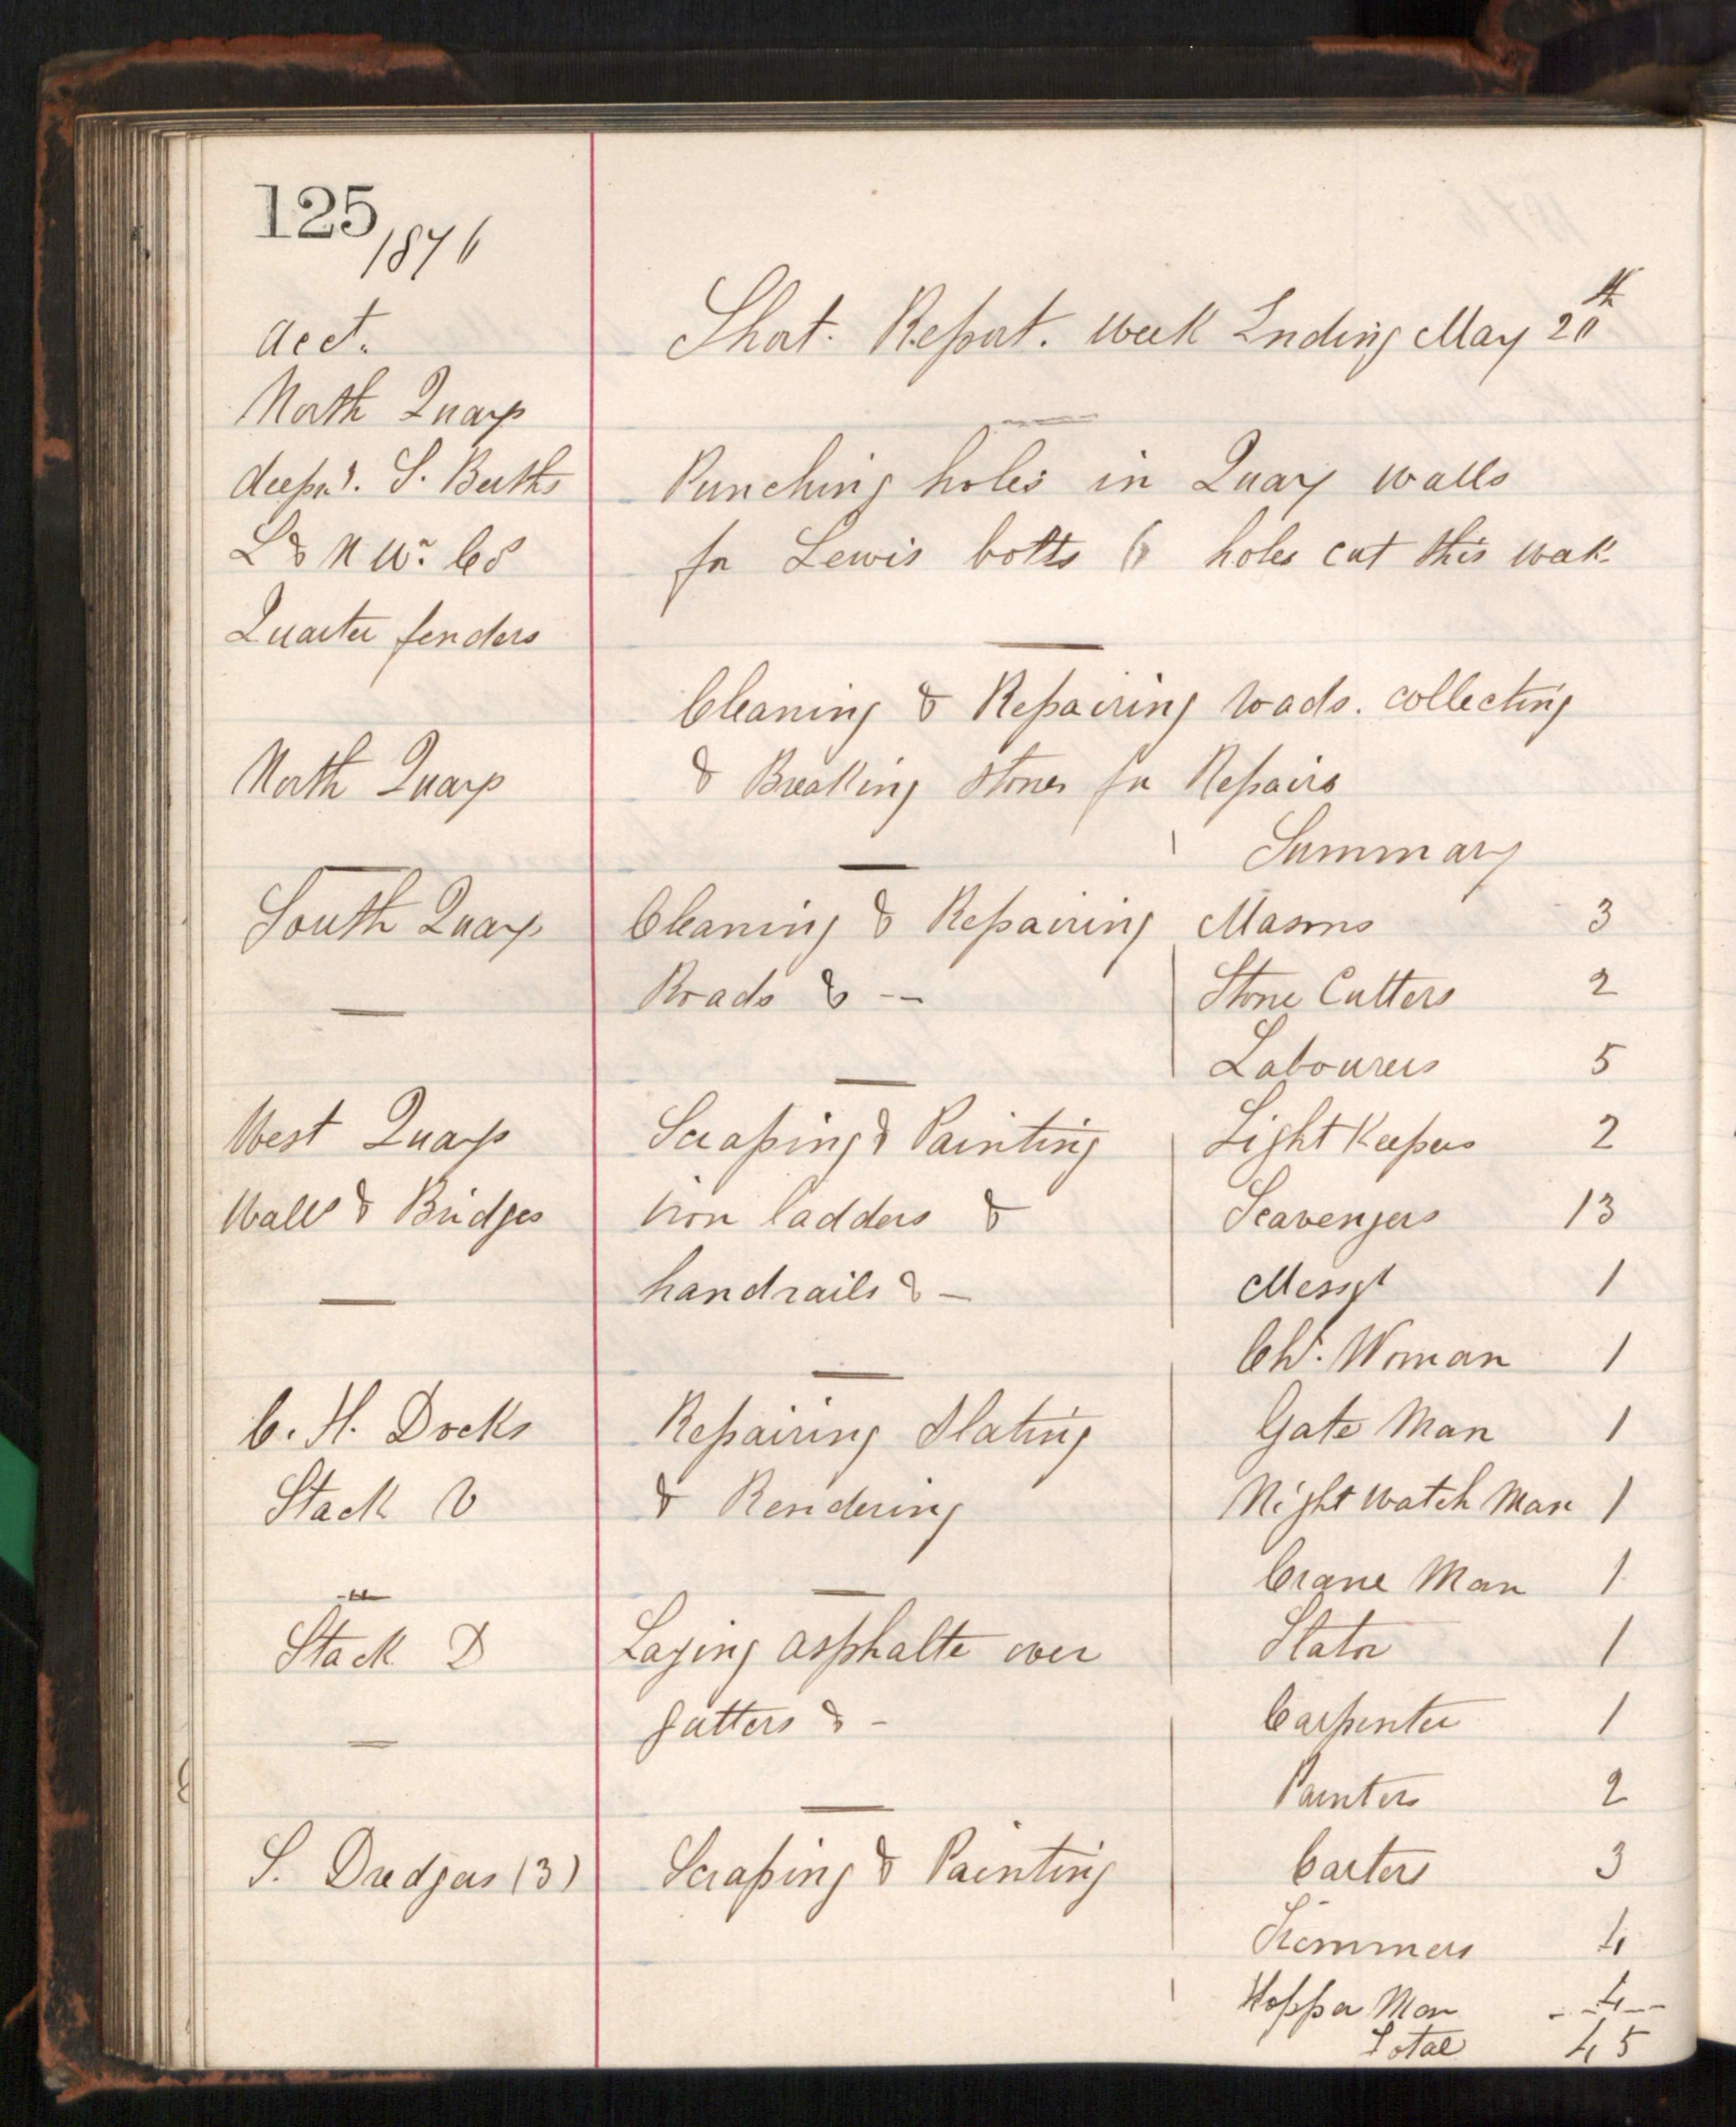 125
1876
Acct.
Short. Report. Week Ending May 20th
North Quay
deepnd. S. Berths
L & N W. Co
Quarter fenders
Punching holes in Quay walls
for Lewis botts 6 holes cut this week
North Quay
Cleaning & Repairing roads. collecting
& Breaking stones for Repairs
South Quay
Cleaning & Repairing
Roads & --
West Quay
Walls & Bridges
Scraping & Painting
iron ladders &
handrails & -
C. H. Docks
Stack
Repairing Slating
& Rendering
Stack D
Laying asphalte over
gutters & -
S. Dredgers (3)
Scraping & Painting
Summary
Masons 3
Stone Cutters 2
Labourers 5
Light Keepers 2
Scavengers 13
Messgr 1
Ch. Woman 1
Gate Man 1
Night Watch Man 1
Crane Man 1
Slator 1
Carpenter 1
Painters 2
Carters 3
Trimmers 4
Hopper Men 4
Total 45